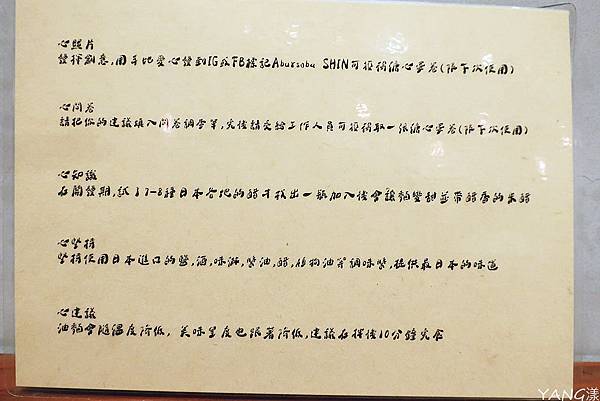 心照片
發揮創意,用手比愛心發到IG或FB標記Aburasoba SHIN可獲得糖心蛋卷(限下次使用)
心問卷
請把你的建議填入問卷調查單,完後請交給工作人員可獲得取一張糖心蛋卷(限下次使用)
心知識
在開發期,試了7-8種日本各地的醋才找出一瓶加入後會讓麵變甜並帶醋香的米醋
心堅持
堅持使用日本進口的鹽,酒,味淋,醬油,醋,植物油等調味醬,提供最日本的味道
心建議
油麵會隨溫度降低, 美味程度也跟著降低,建議在拌後10分鐘完食
YANG漾